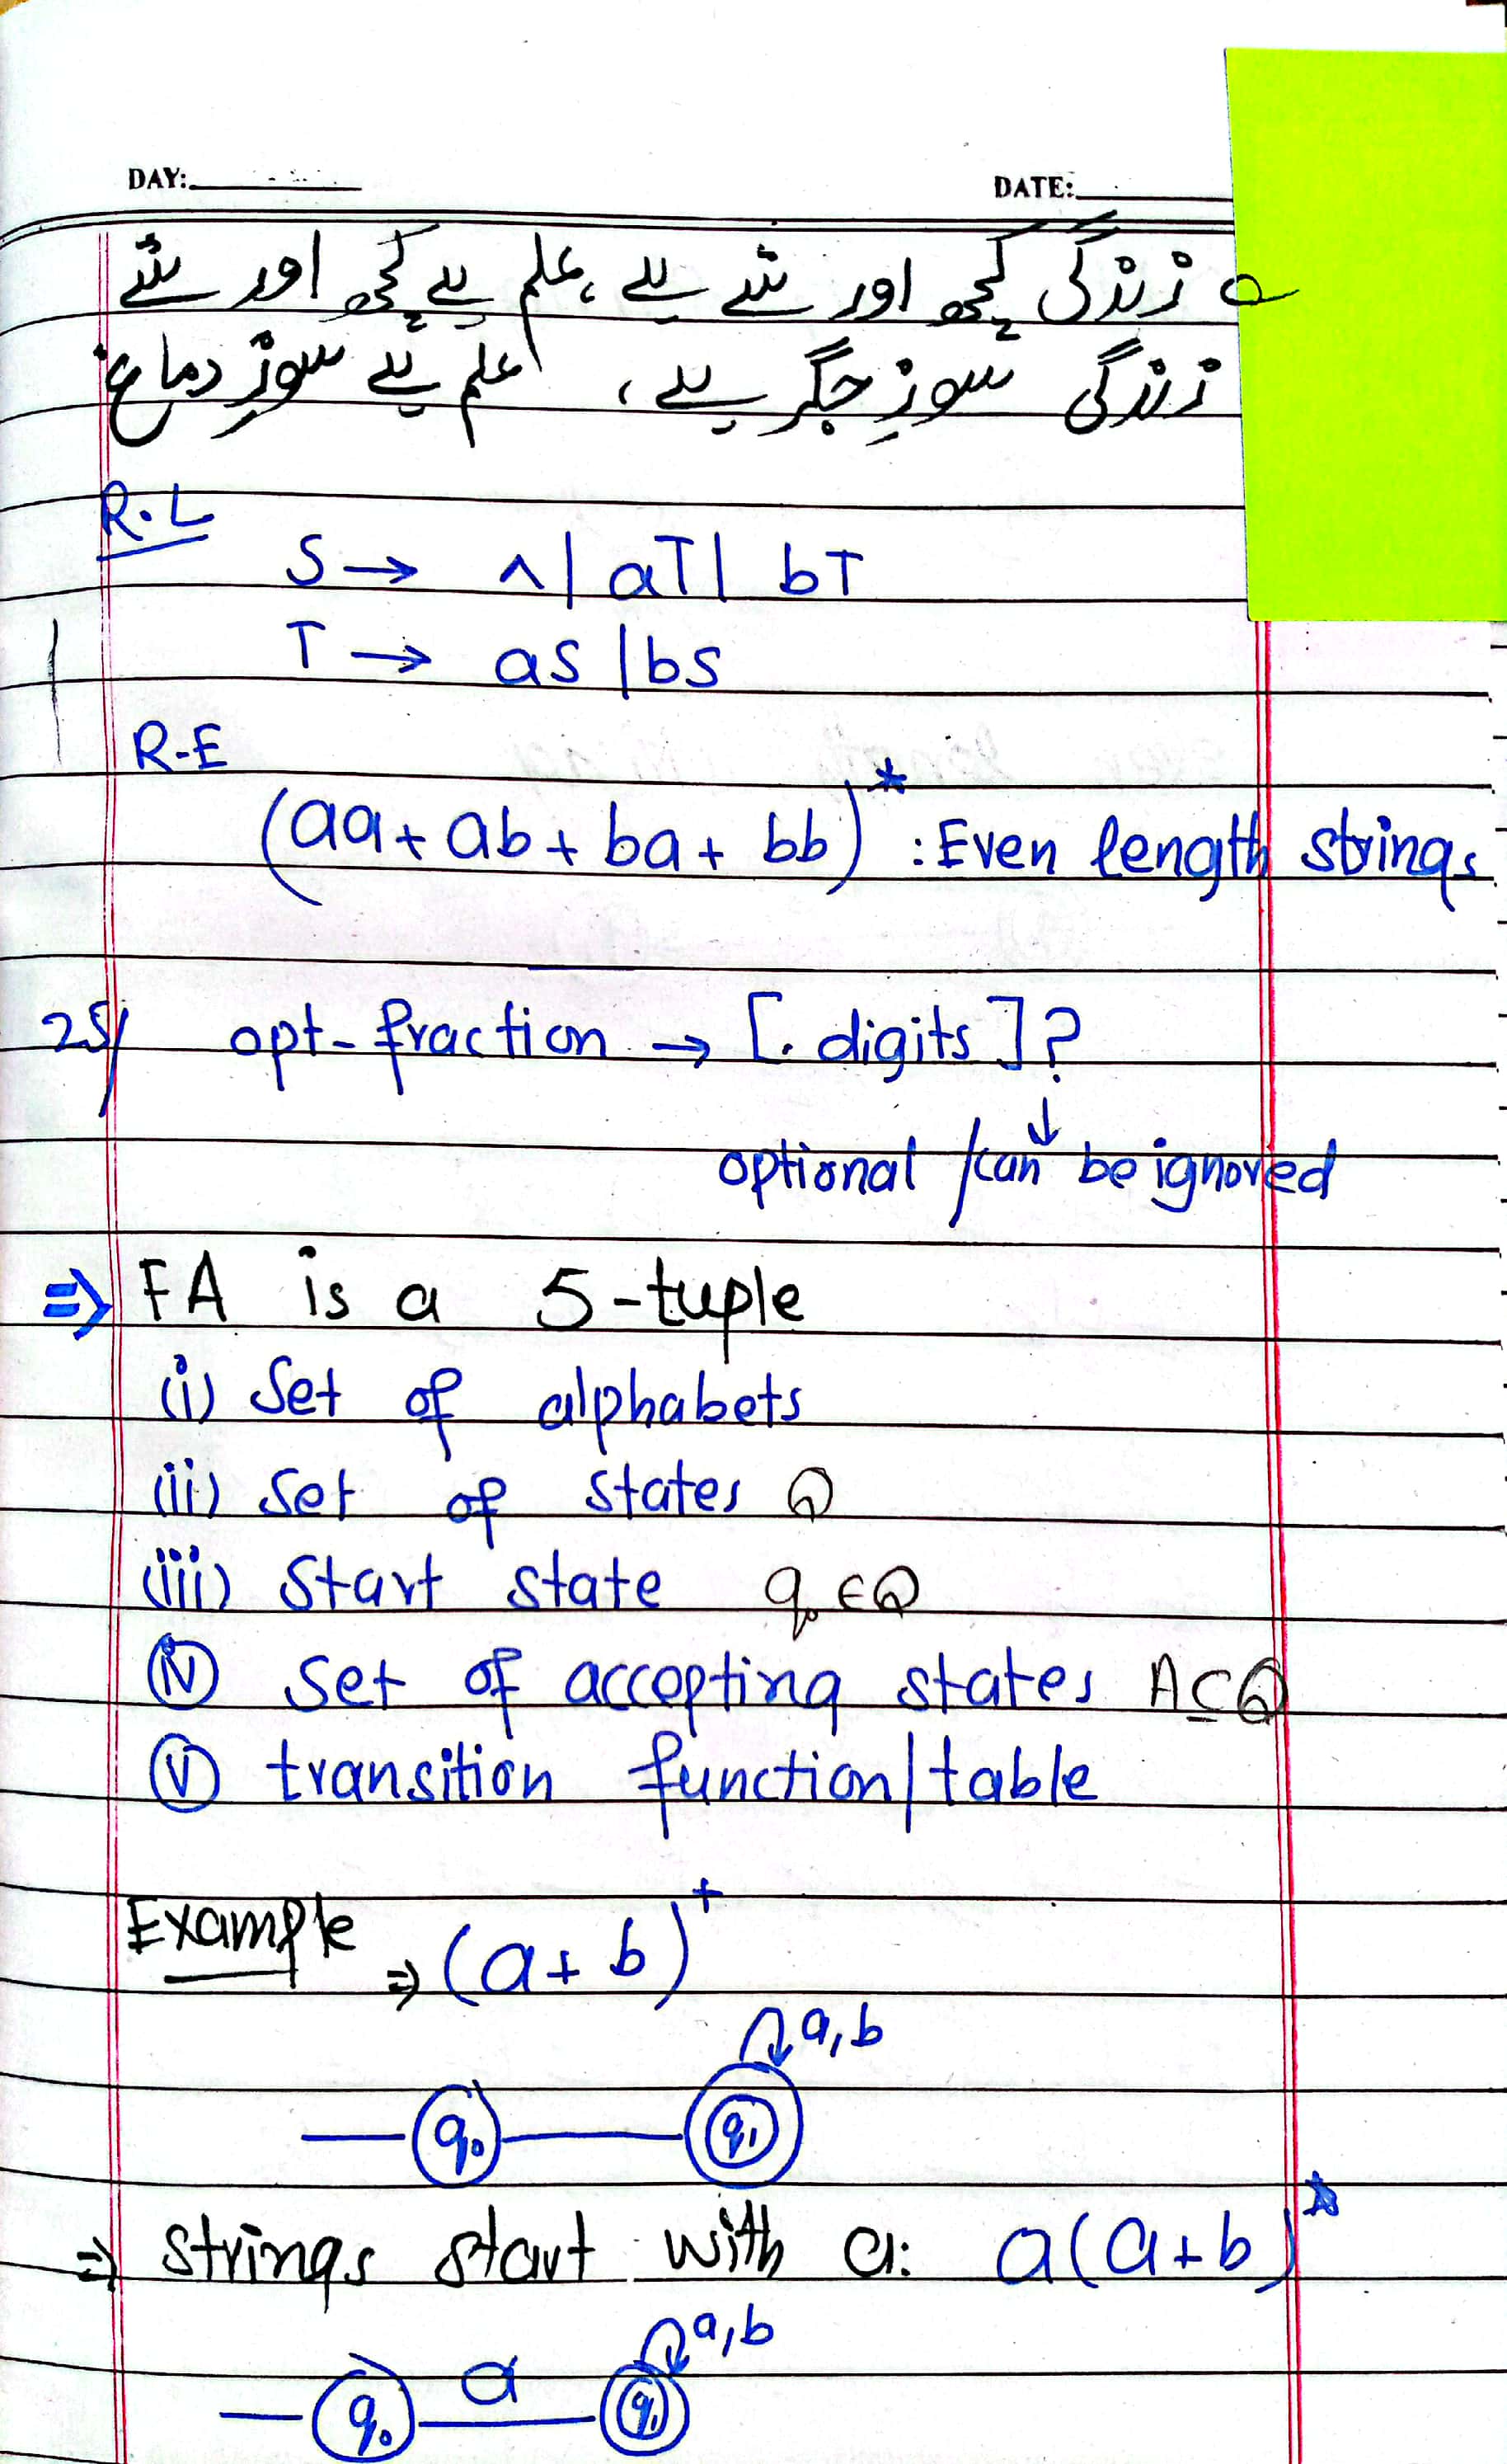 DAY: DATE:
زندگی کچھ اور شے ہے، علم ہے کچھ اور شے
زندگی سوزِ جگر ہے، علم ہے سوزِ دماغ
R.L
S → ^ | aT | bT
T → aS | bS
R-E
(aa + ab + ba + bb)* : Even length strings
25/ opt-fraction → [. digits]?
↓
optional / can be ignored
⇒ FA is a 5-tuple
(i) Set of alphabets
(ii) Set of states Q
(iii) Start state q₀ ∈ Q
(iv) Set of accepting states A ⊆ Q
(v) transition function | table
Example ⇒ (a + b)⁺
a, b
q₀ q₁
⇒ Strings start with a: a(a+b)*
a, b
a
q₀ q₁